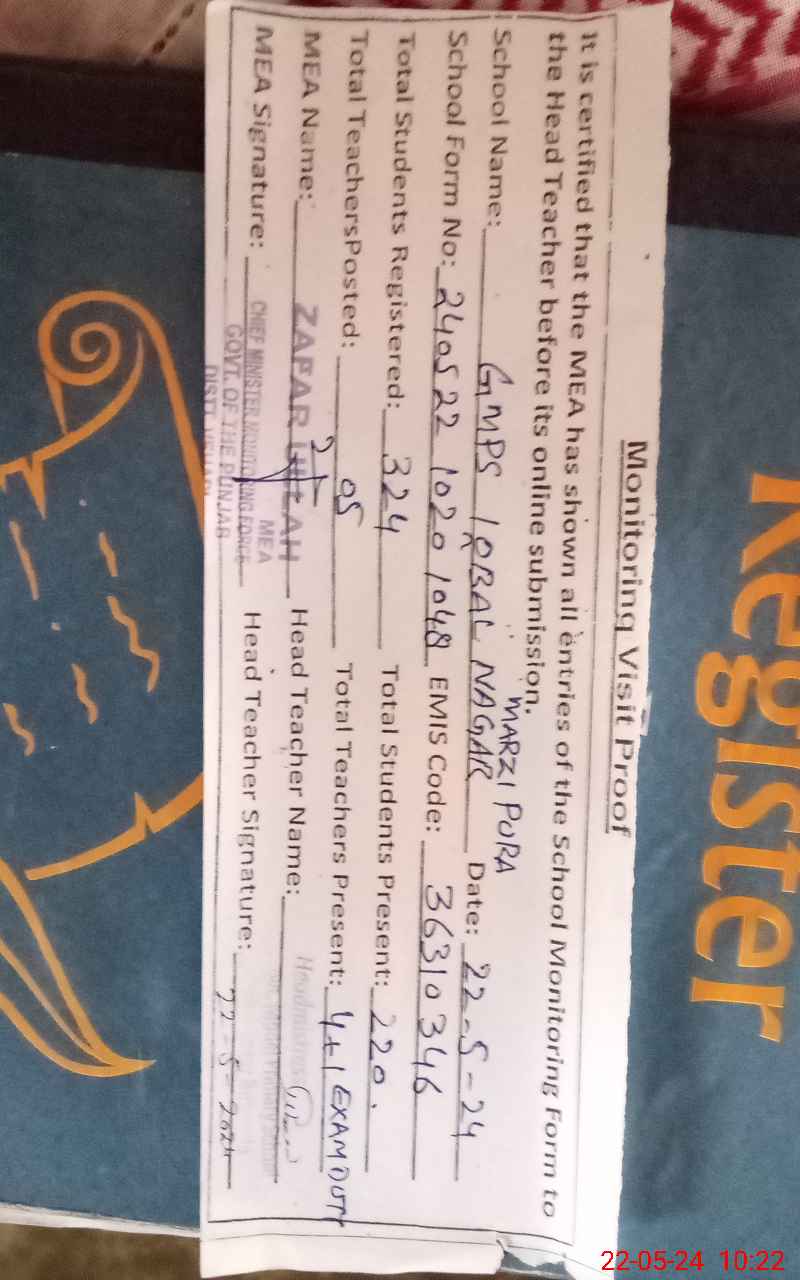 Register
Monitoring Visit Proof
It is certified that the MEA has shown all entries of the School Monitoring Form to
the Head Teacher before its online submission.
MARZI PURA
School Name: GMPS IQBAL NAGAR Date: 22-5-24
School Form No: 240522 1020 1048 EMIS Code: 36310346
Total Students Registered: 324 Total Students Present: 220.
Total TeachersPosted: 05 Total Teachers Present: 4+1 EXAM DUTY
MEA Name: ZAFAR ULLAH Head Teacher Name: Headmistress
MEA
MEA Signature: CHIEF MINISTER MONITORING FORCE Head Teacher Signature: 22-5-2024
GOVT. OF THE PUNJAB
DISTT.
22-05-24 10:22